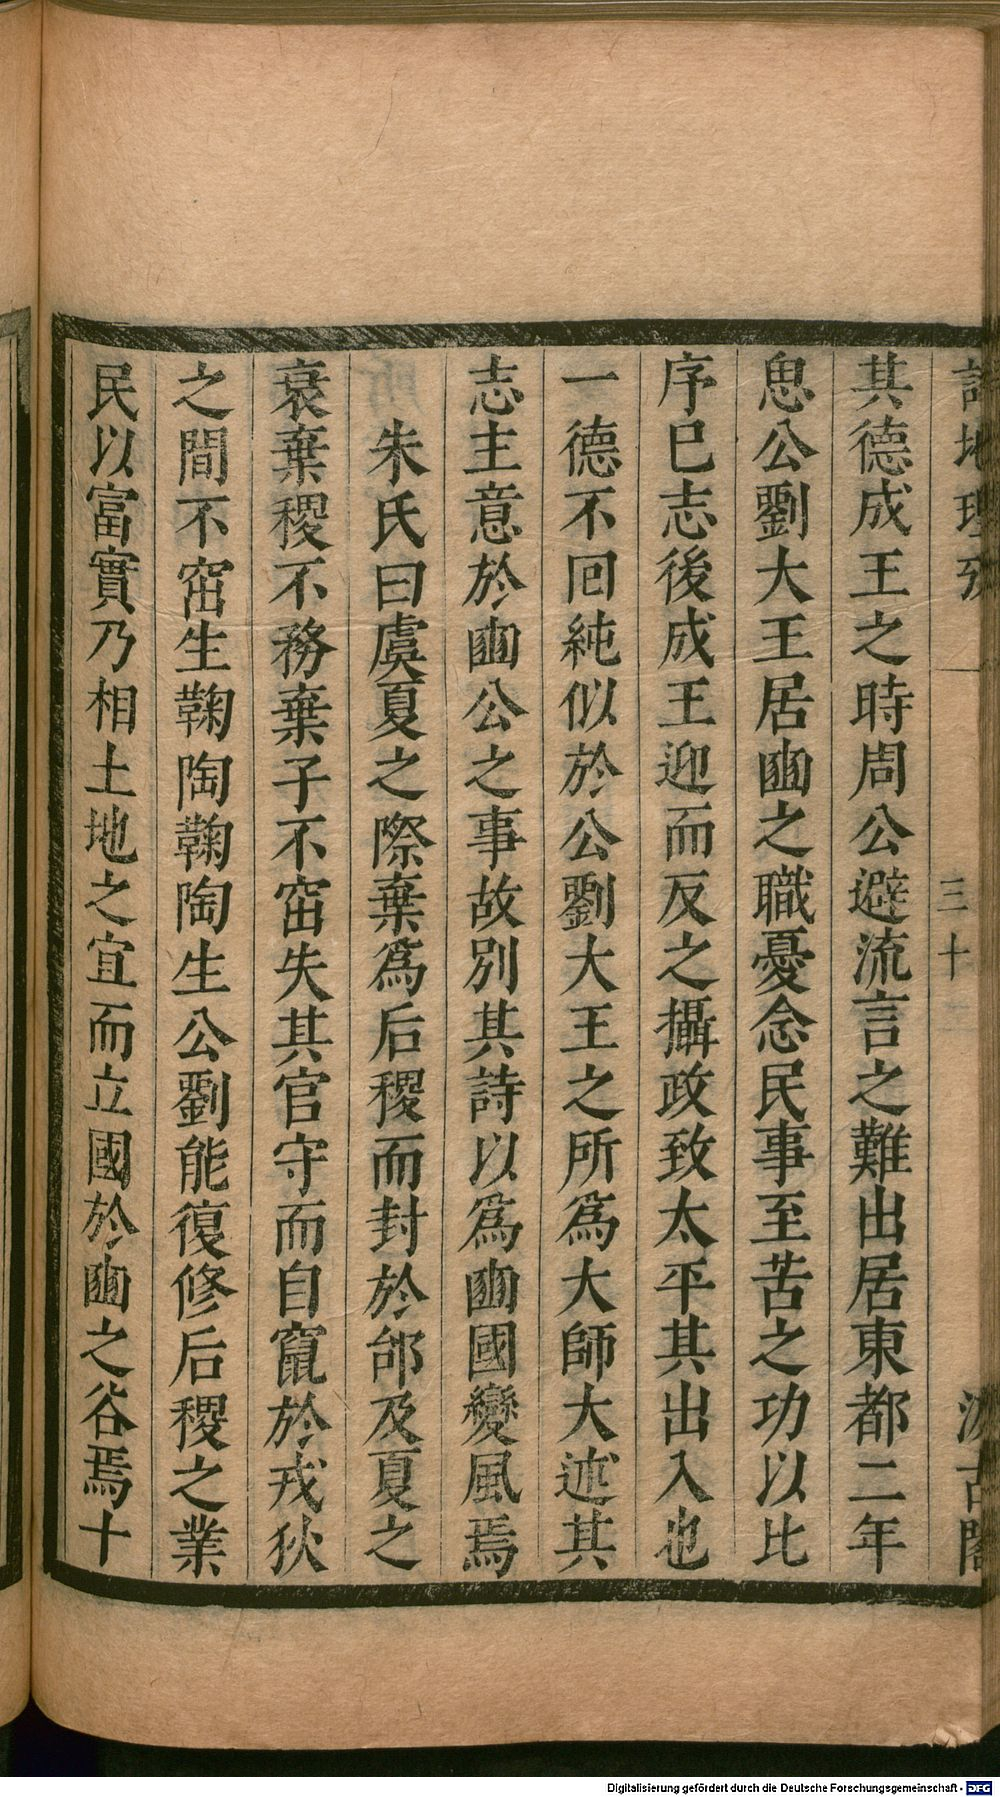 詩地理攷
三十
汲古閣
其德成王之時周公避流言之難出居東都二年
思公劉大王居豳之職憂念民事至苦之功以比
序巳志後成王迎而反之攝政致太平其出入也
一德不回純似於公劉大王之所爲大師大述其
志主意於豳公之事故別其詩以爲豳國變風焉
朱氏曰虞夏之際棄爲后稷而封於邰及夏之
衰棄稷不務棄子不窋失其官守而自竄於戎狄
之間不窋生鞠陶鞠陶生公劉能復修后稷之業
民以富實乃相土地之宜而立國於豳之谷焉十
Digitalisierung gefördert durch die Deutsche Forschungsgemeinschaft - DFG